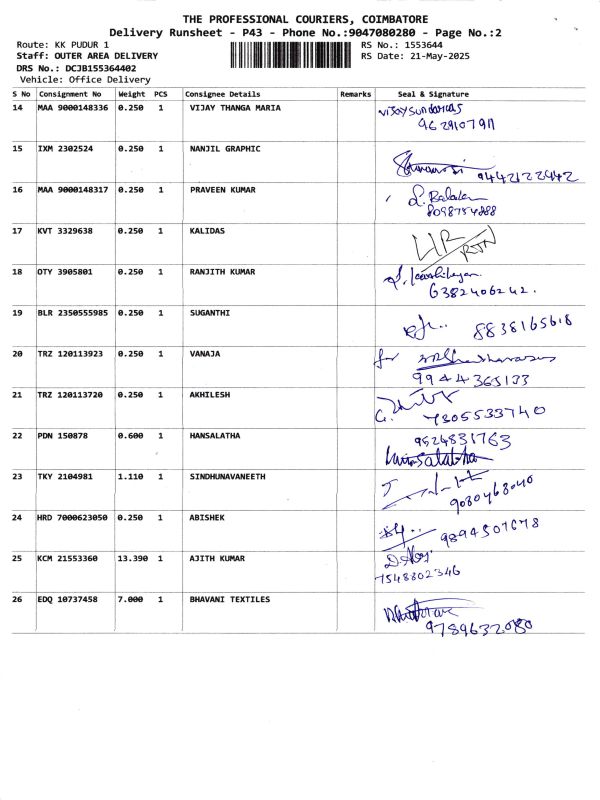 THE PROFESSIONAL COURIERS, COIMBATORE
Delivery Runsheet - P43 - Phone No.:9047080280 - Page No.:2
Route: KK PUDUR 1 RS No.: 1553644
Staff: OUTER AREA DELIVERY RS Date: 21-May-2025
DRS No.: DCJB155364402
Vehicle: Office Delivery
S No Consignment No Weight PCS Consignee Details Remarks Seal & Signature
14 MAA 9000148336 0.250 1 VIJAY THANGA MARIA
9629107911
15 IXM 2302524 0.250 1 NANJIL GRAPHIC
9442122442
16 MAA 9000148317 0.250 1 PRAVEEN KUMAR
8098754888
17 KVT 3329638 0.250 1 KALIDAS
18 OTY 3905801 0.250 1 RANJITH KUMAR
6382406242.
19 BLR 2350555985 0.250 1 SUGANTHI 8838165618
20 TRZ 120113923 0.250 1 VANAJA for
9944365133
21 TRZ 120113720 0.250 1 AKHILESH
7305533740
22 PDN 150878 0.600 1 HANSALATHA 9524831763
Hansalatha
23 TKY 2104981 1.110 1 SINDHUNAVANEETH
9080468040
24 HRD 7000623050 0.250 1 ABISHEK
9894507678
25 KCM 21553360 13.390 1 AJITH KUMAR
7548802346
26 EDQ 10737458 7.000 1 BHAVANI TEXTILES
9789632080